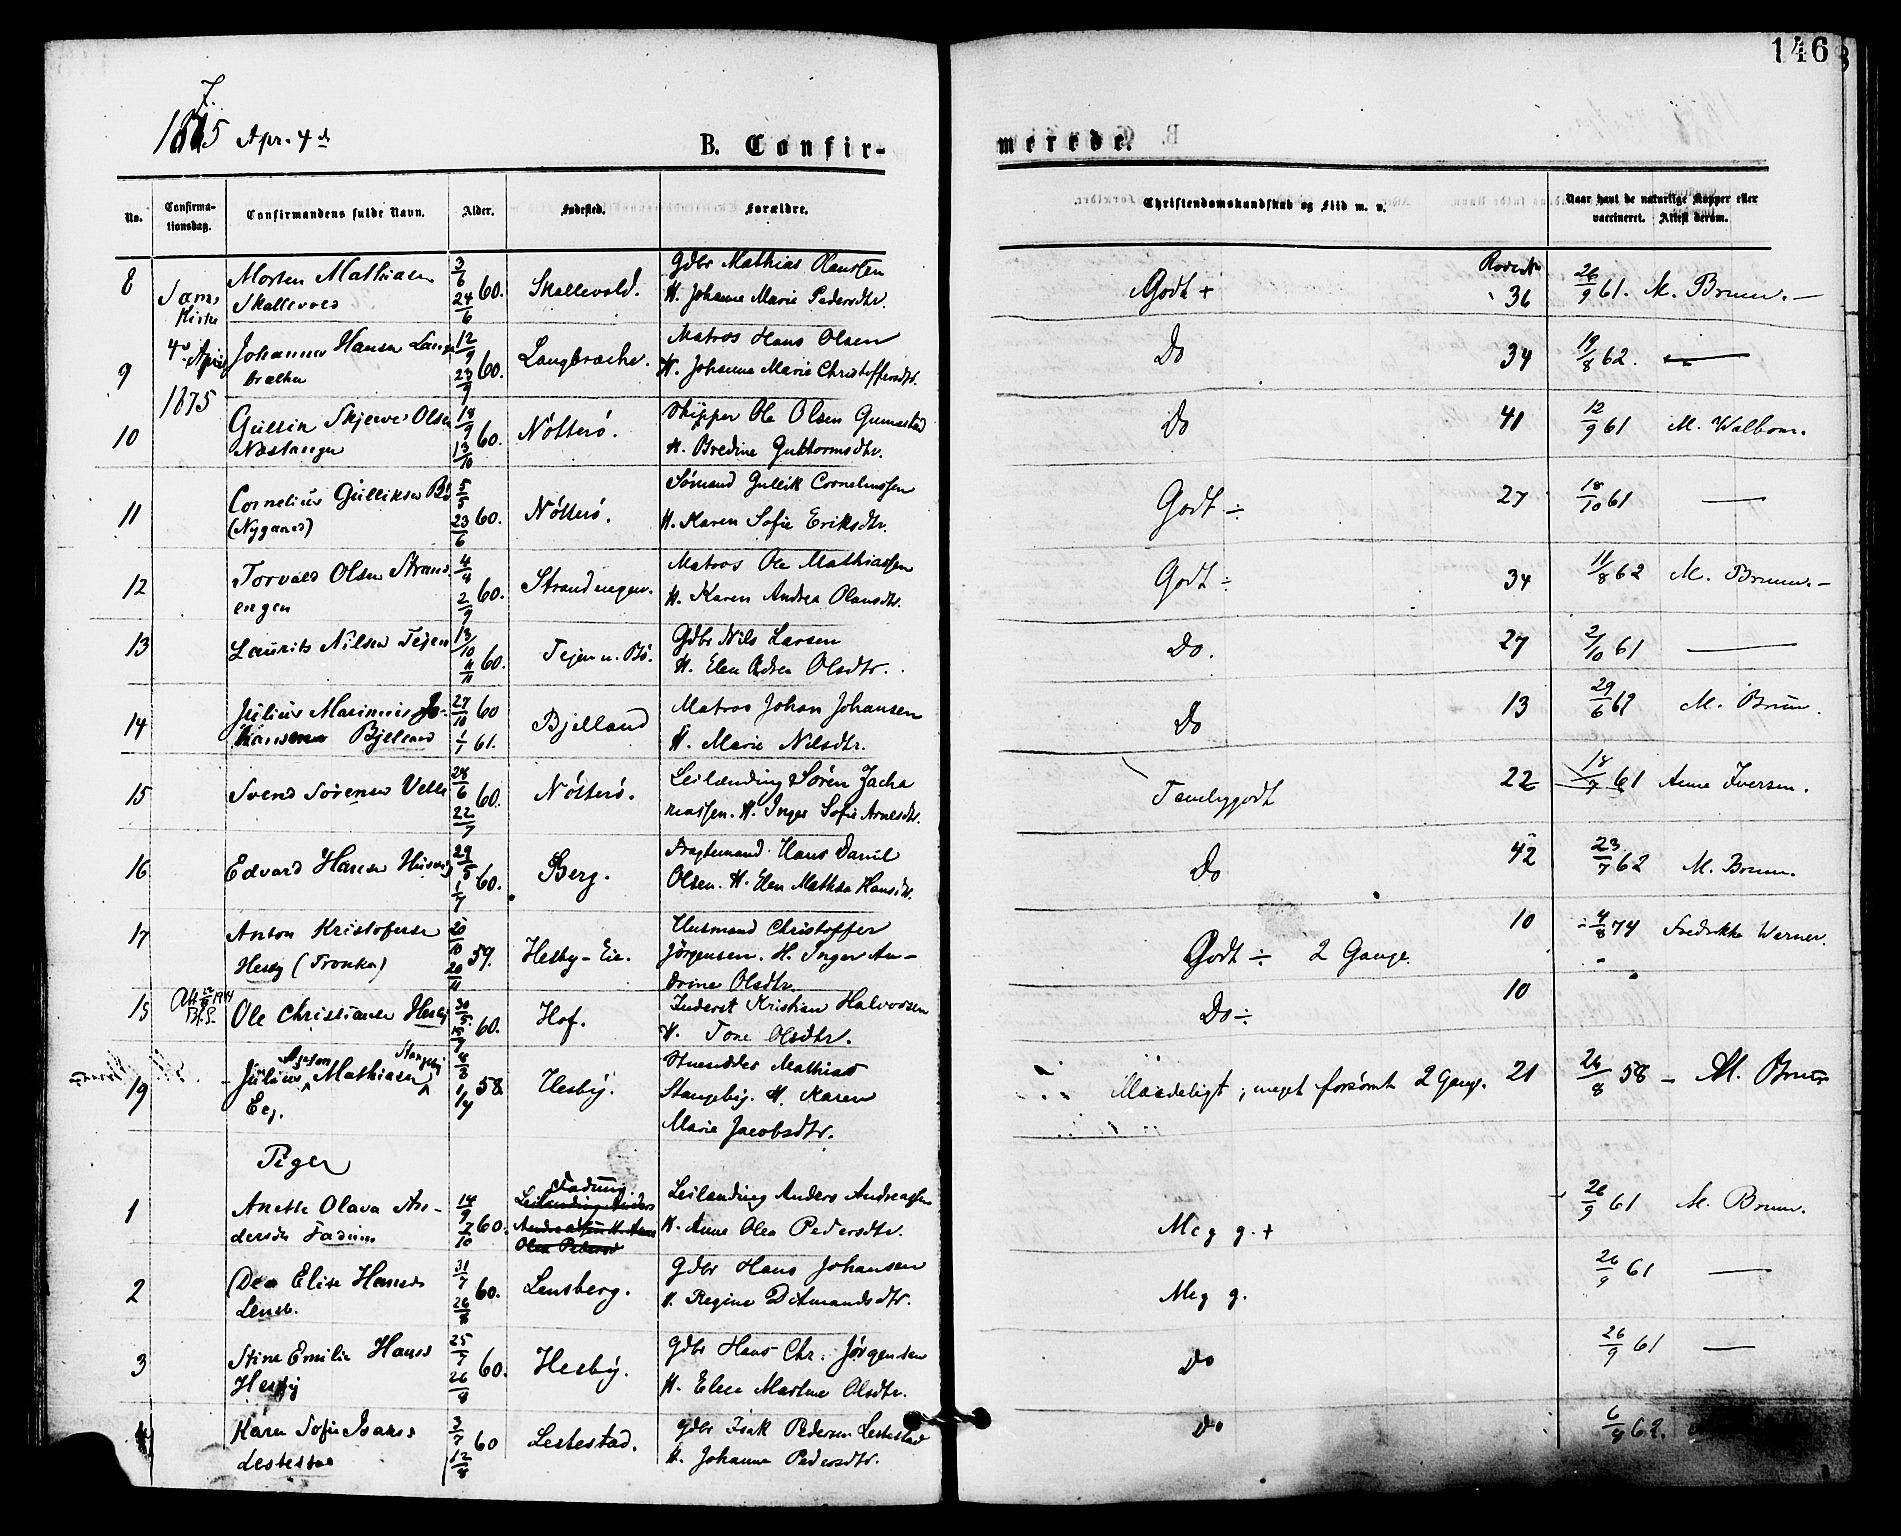 146
7.
1875 Apr. 4de
B. Confir-
merede.
No.
Confirma-
tionsdag.
Confirmandens fulde Navn.
Alder.
Fødested.
Forældre.
Christendomskundskab og Flid m. v.
Naar havt de naturlige Kopper eller
vaccineret. Attest derom.
8 Sams Kirke 4de April 1875
Morten Mathiasen
Skallevold
3/6 24/6 60. Skallevold.
Gdbr Mathias Olaussen
H. Johanne Marie Pedersdtr.
Godt + Rode No 36 26/9 61. M. Bruun. —
9 Johannes Hansen Lang
bræcke
12/9 23/9 60. Langbræcke.
Matros Hans Olsen
H. Johanne Marie Christoffersdtr.
Do 34 19/8 62. —
10 Gullik Skjerve Olsen
Nestangen
18/9 13/10 60. Nötterö.
Skipper Ole Olsen Gunnestad
H. Bredine Guttormsdtr.
Do 41 12/9 61 M. Walbom.
11 Cornelius Gulliksen Bö
(Nygaard)
5/5 23/6 60. Nötterö.
Sömand Gullik Corneliussen
H. Karen Sofie Eriksdtr.
Godt ÷ 27 18/10 61 —
12 Torvald Olsen Strand
engen
4/4 2/9 60. Strandengen.
Matros Ole Mathiassen
H. Karen Andrea Olausdtr.
Godt ÷ 34 11/8 62 M. Bruun. —
13 Laurits Nilsen Tejen
13/10 11/11 60. Tejen u. Bö.
Gdbr Nils Larsen
H. Elen Andrea Olsdtr.
Do. 27 2/10 61 —
14 Julius Marinius Jo-
hansen Bjelland
27/10 60 1/7 61. Bjelland
Matros Johan Johansen
H. Marie Nilsdtr.
Do 13 29/6 62 M. Bruun.
15 Svend Sörensen Velle
28/6 22/7 60. Nötterö.
Leilænding Sören Zacha
riassen. H. Inger Sofie Arnesdtr.
Temlig godt 22 18/7 61 Anne Iversen.
16 Edvard Hansen Husvig
29/5 1/7 60. Berg.
Fragtemand Hans Daniel
Olsen. H. Elen Mathea Hansdtr.
Do 42 23/7 62 M. Bruun.
17 Anton Kristofersen
Hesby (Tronka)
20/10 20/11 59. Hesby-Eie.
Husmand Christoffer
Jörgensen. H. Inger An-
drine Olsdtr.
Godt ÷ 2 Gange. 10 4/8 74 Fredrikke Werner.
18 Ole Christiansen Hesby
30/5 60. Hof.
Inderst Kristian Halvorsen
H. Tone Olsdtr.
Do ÷ 10
19 Julius Mathiasen Stangeby
Eeg.
8/3 58. Hesby.
Mathias
Stangeby. H. Karen
Marie Jacobsdtr.
Maadeligt; meget forsömt 2 Gange. 21 26/8 58 — M. Bruun
Piger
1 Anette Olava An-
dersdr Fadum
14/9 7/10 60. Fadum
Leilænding Anders
Andreassen H. Anne
Olea Pedersd
Leilænding Anders Andreassen
H. Anne Olea Pedersdtr.
Meg g. + 26/9 61 M. Bruun.
2 Dea Elise Hansdr
Lensb.
31/7 26/8 60. Lensberg.
Gdbr Hans Johansen
H. Regine Ditmandsdtr.
Meg g. 26/9 61 —
3 Stine Emilie Hansd
Hesby
25/7 26/8 60. Hesby.
Gdbr Hans Chr. Jørgensen
H. Elen Martine Olsdtr.
Do 26/9 61 —
4 Karen Sofie Isaksd
Lestestad
3/7 12/8 60 Lestestad.
Gdbr Isak Pedersen Lestestad
H. Johanne Pedersdtr.
Do 6/9 62.